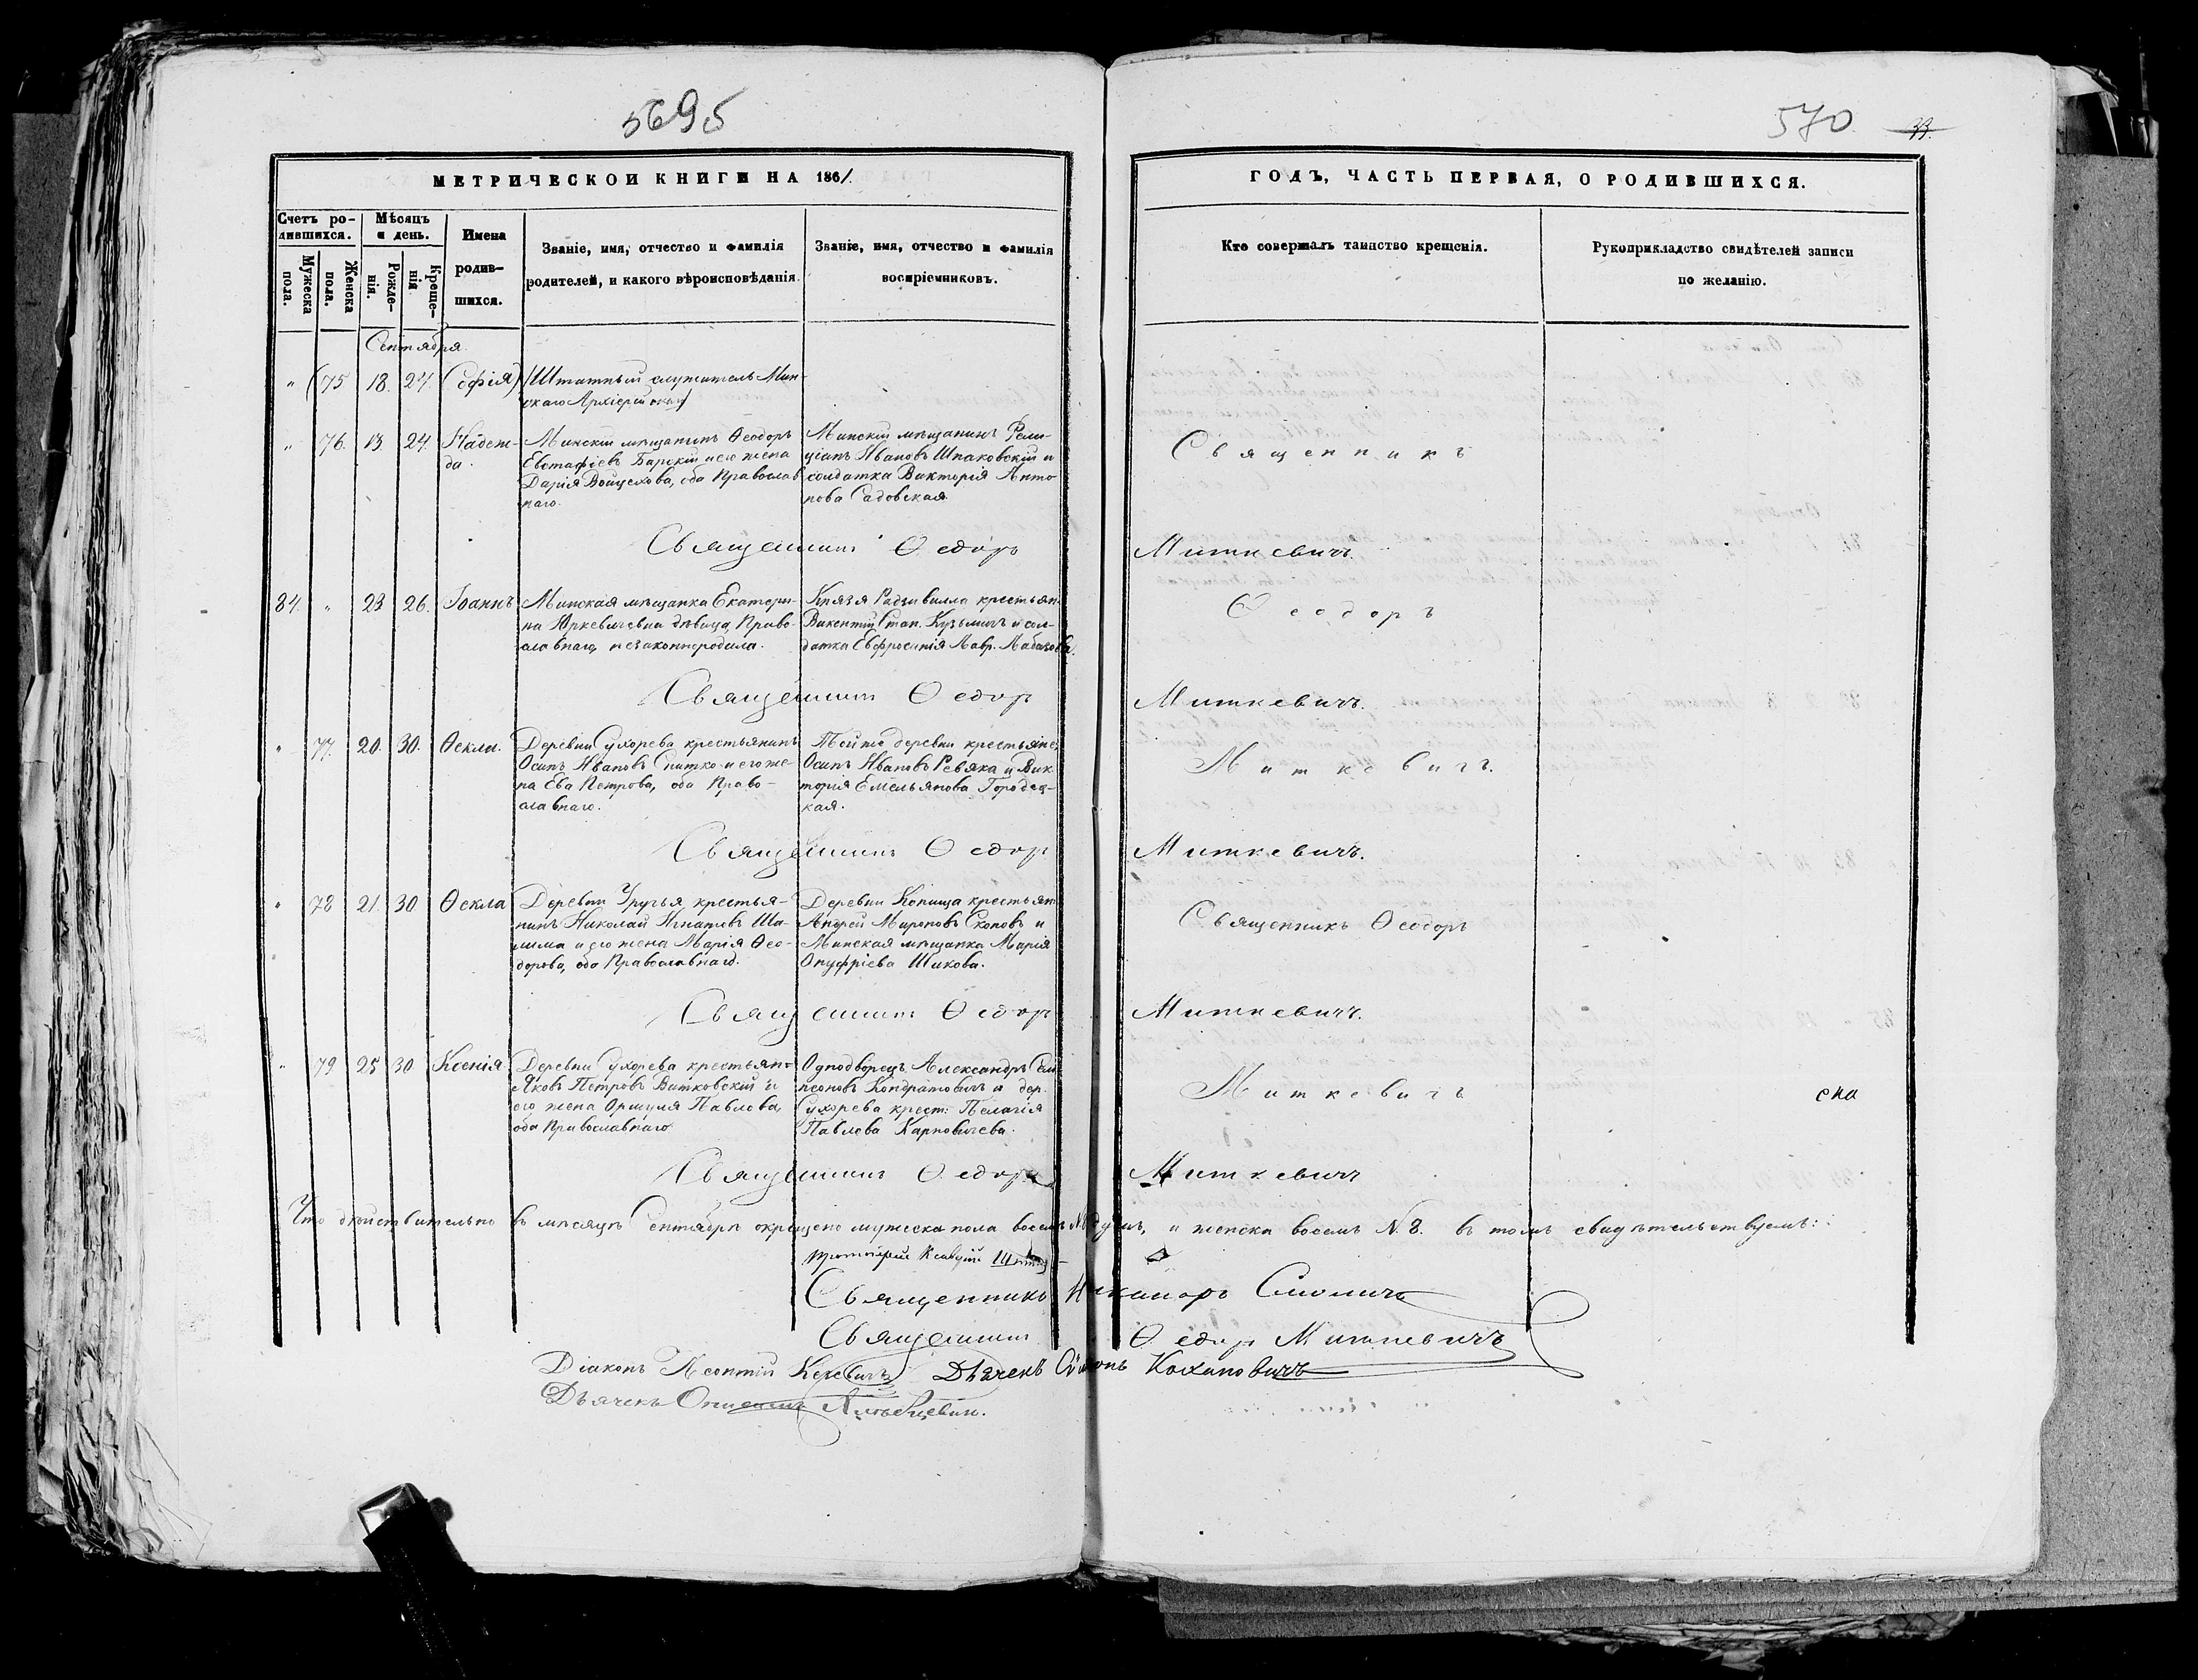 5695
570 33.
МЕТРИЧЕСКОЙ КНИГИ НА 1861.
ГОДЪ, ЧАСТЬ ПЕРВАЯ, О РОДИВШИХСЯ.
Счетъ ро-
дившихся.
Мужеска
пола.
Женска
пола.
Мѣсяцъ
и день.
Рожде-
нія.
Креще-
нія
Имена
родив-
шихся.
Званіе, имя, отчество и фамилія
родителей, и какого вѣроисповѣданія.
Званіе, имя, отчество и фамилія
воспріемниковъ.
Кто совершалъ таинство крещенія.
Рукоприкладство свидѣтелей записи
по желанію.
Сентября
" (75 18. 24. Софія) (Штатный служитель Мин-
скаго Архіерейскаго)
" 76. 13. 24. Надеж-
да.
Минскій мѣщанинъ Ѳеодоръ
Евстафіевъ Барскій и его жена
Дарія Войцехова, оба Православ
наго.
Минскій мѣщанинъ Фели-
ціанъ Ивановъ Шпаковскій и
солдатка Викторія Анто
нова Садовская.
Священникъ
Священникъ Ѳедоръ Миткевичъ.
84. " 23 26. Іоаннъ
Минская мѣщанка Екатери-
на Юркевичевна дѣвица, Право-
славнаго, незаконнородила.
Князя Радзивилла крестьян.
Викентій Стан. Кузьмичъ и сол-
датка Евфросинія Лавр.
Ѳеодоръ
Священникъ Ѳедоръ Миткевичъ.
" 77. 20. 30. Ѳекла.
Деревни Сухорева крестьянинъ
Осипъ Ивановъ Снитко и его же-
на Ева Петрова, оба Право-
славнаго.
Той же деревни крестьяне,
Осипъ Ивановъ Ревяка и Вик-
торія Емельянова Городец-
кая.
Миткевичъ.
Священникъ Ѳедоръ Миткевичъ.
" 78 21. 30 Ѳекла
Деревни Уручья крестья-
нинъ Николай Игнатовъ Ша-
лима и его жена Марія Ѳео-
дорова, оба Православнаго.
Деревни Копища крестьян.
Андрей Мироновъ Скоповъ и
Минская мѣщанка Марія
Онуфріева Шикова.
Священникъ Ѳеодоръ
Священникъ Ѳедоръ Миткевичъ.
" 79 25 30 Ксенія
Деревни Сухорева крестьян.
Яковъ Петровъ Витковскій и
его жена Оршуля Павлова,
оба Православнаго.
Однодворецъ Александръ Сим
пеоновъ Кондратовичъ и дер.
Сухорева крест: Пелагія
Павлова Карповичева.
Миткевичъ
ска
Священникъ Ѳедоръ Миткевичъ
Что дѣйствительно въ мѣсяцѣ Сентябрѣ окрещено мужеска пола восемь душъ, и женска восемь N. 8. въ томъ свидѣтельствуемъ:
протоіерей
Священникъ Никаноръ Смоличъ
Священникъ Ѳедоръ Миткевичъ
Діаконъ Леонтій Дьячекъ Сѵмонъ Кохановичъ
Дьячекъ